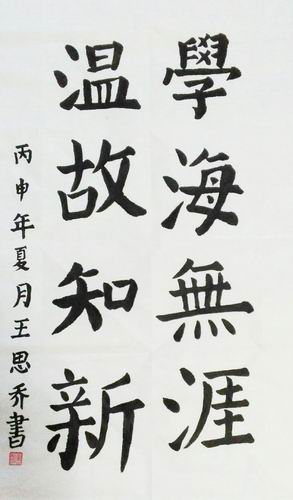 學海無涯
温故知新
丙申年夏月王思乔書